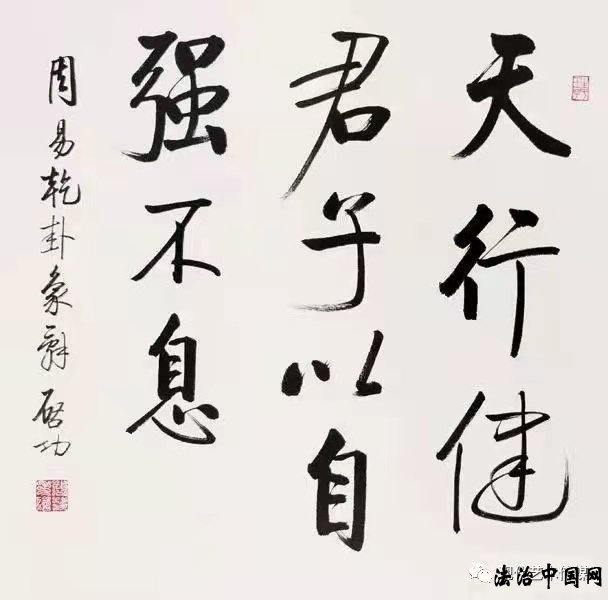 天行健
君子以自
强不息
周易乾卦象辞 启功
法治中国网